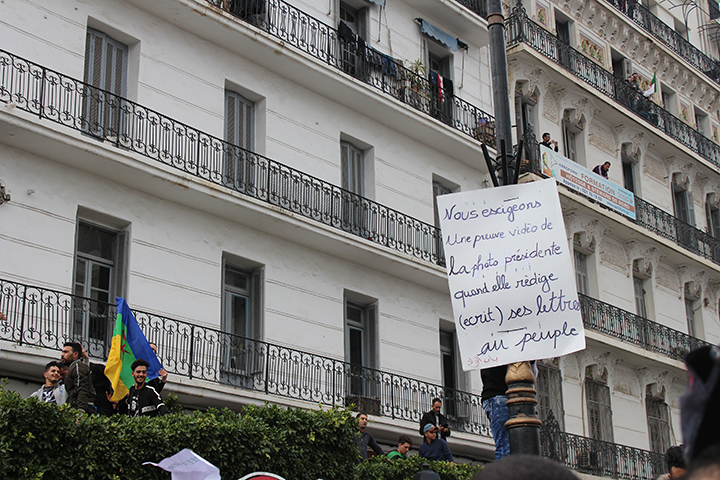 Nous escigeons
Une preuve vidéo de
La photo présidente
quand elle rédige
(ecrit) ses lettre
au peuple
FORMATION